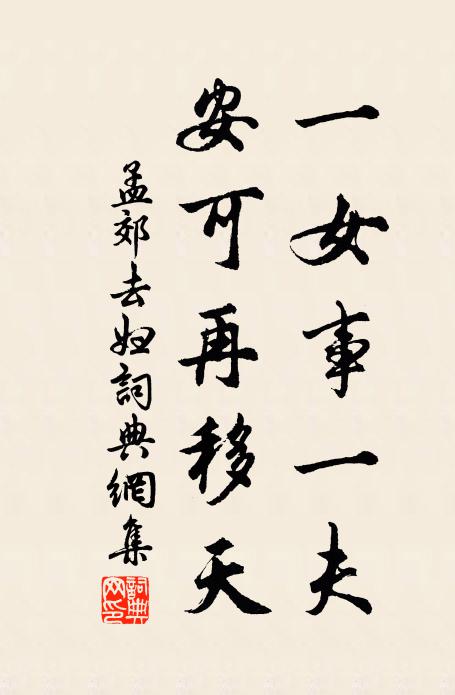 一女事一夫
安可再移天
孟郊去妇詞典網集
詞典网印